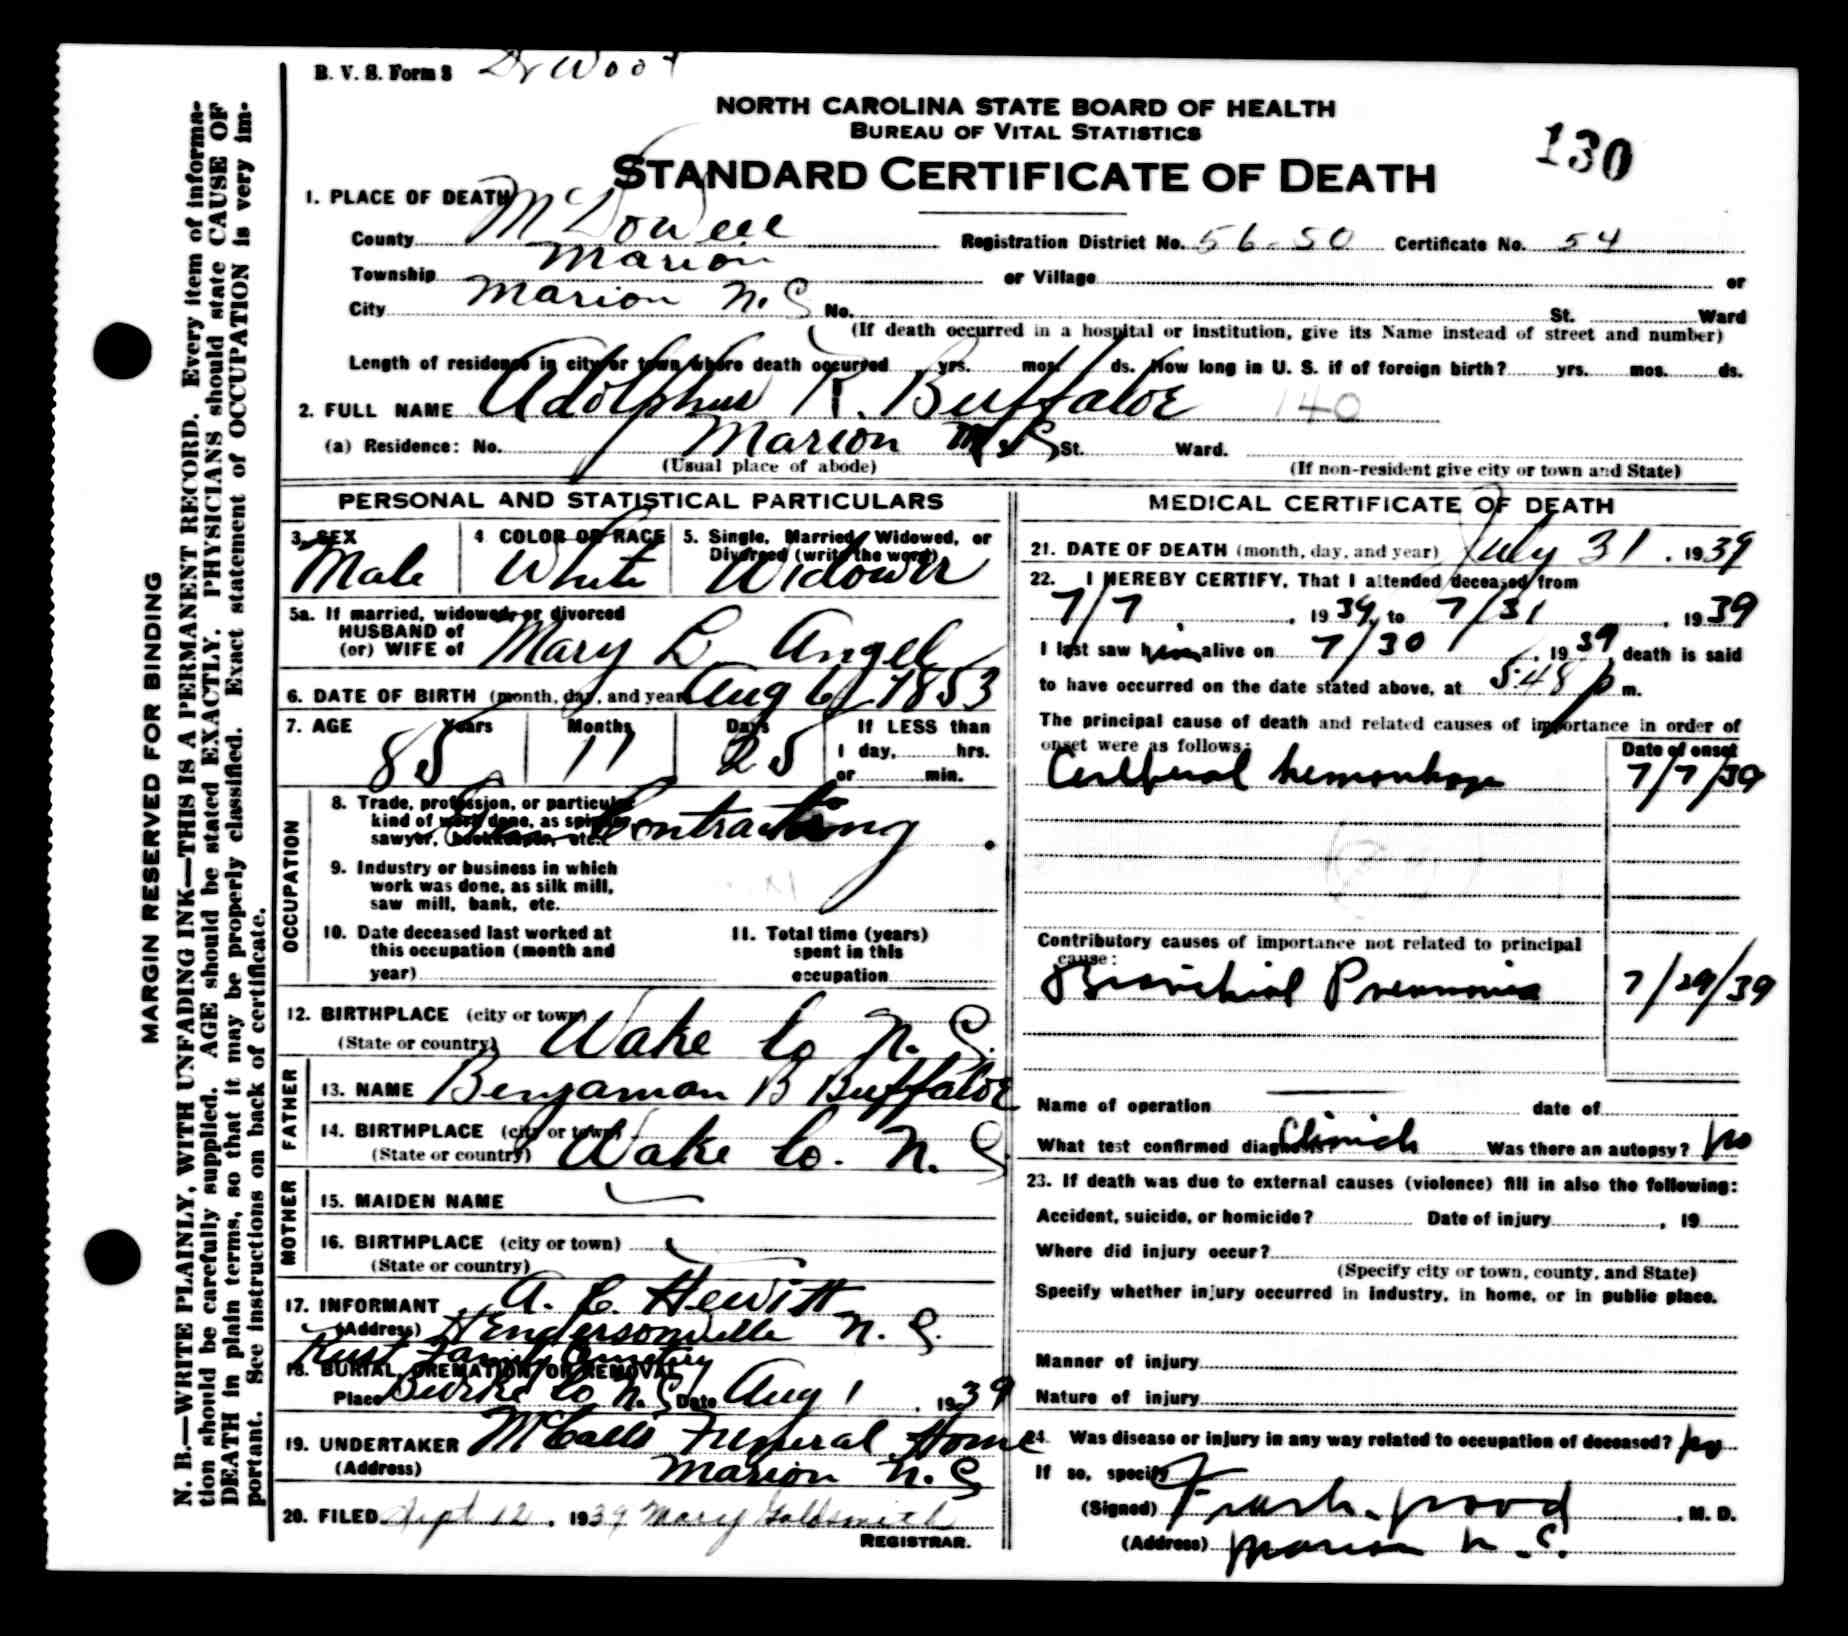 B. V. S. Form 8 Dr Wood
NORTH CAROLINA STATE BOARD OF HEALTH
BUREAU OF VITAL STATISTICS
STANDARD CERTIFICATE OF DEATH
130
1. PLACE OF DEATH
County McDowell Registration District No. 56-50 Certificate No. 54
Township Marion or Village or
City Marion N. C No. St. Ward
(If death occurred in a hospital or institution, give its Name instead of street and number)
Length of residence in city or town where death occurred yrs. mos. ds. How long in U. S. if of foreign birth? yrs. mos. ds.
2. FULL NAME Adolphus R. Buffaloe 140
(a) Residence: No. Marion N. C St. Ward.
(Usual place of abode) (If non-resident give city or town and State)
PERSONAL AND STATISTICAL PARTICULARS
3. SEX 4 COLOR OR RACE 5. Single, Married, Widowed, or
Divorced (write the word)
Male White Widower
5a. If married, widowed, or divorced
HUSBAND of
(or) WIFE of Mary L. Angel
6. DATE OF BIRTH (month, day, and year) Aug 6, 1853
7. AGE Years Months Days If LESS than
1 day, hrs.
or min.
85 11 25
OCCUPATION
8. Trade, profession, or particular
kind of work done, as spinner,
sawyer, bookkeeper, etc. Contracting
9. Industry or business in which
work was done, as silk mill,
saw mill, bank, etc.
10. Date deceased last worked at
this occupation (month and
year)
11. Total time (years)
spent in this
occupation
12. BIRTHPLACE (city or town)
(State or country) Wake Co N. C.
FATHER
13. NAME Benjaman B Buffaloe
14. BIRTHPLACE (city or town)
(State or country) Wake Co. N. C
MOTHER
15. MAIDEN NAME
16. BIRTHPLACE (city or town)
(State or country)
17. INFORMANT A. C. Hewitt
(Address) Hendersonville N. C.
Rust Family Cemetery
18. BURIAL, CREMATION OR REMOVAL
Place Burke Co N. C Date Aug 1, 1939
19. UNDERTAKER McCalls Funeral Home
(Address) Marion N. C
20. FILED Sept 12, 1939 Mary Goldsmith
REGISTRAR.
MEDICAL CERTIFICATE OF DEATH
21. DATE OF DEATH (month, day, and year) July 31, 1939
22. I HEREBY CERTIFY, That I attended deceased from
7/7, 1939, to 7/31, 1939
I last saw him alive on 7/30, 1939 death is said
to have occurred on the date stated above, at 5:48 p m.
The principal cause of death and related causes of importance in order of
onset were as follows:
Date of onset
Cerebral hemorrhage 7/7/39
Contributory causes of importance not related to principal
cause:
Bronchial Pneumonia 7/29/39
Name of operation date of
What test confirmed diagnosis? Clinical Was there an autopsy? No
23. If death was due to external causes (violence) fill in also the following:
Accident, suicide, or homicide? Date of injury , 19
Where did injury occur?
(Specify city or town, county, and State)
Specify whether injury occurred in industry, in home, or in public place.
Manner of injury
Nature of injury
24. Was disease or injury in any way related to occupation of deceased? No
If so, specify
(Signed) Frank Wood, M. D.
(Address) Marion N. C.
MARGIN RESERVED FOR BINDING
N. B.—WRITE PLAINLY, WITH UNFADING INK—THIS IS A PERMANENT RECORD. Every item of informa-
tion should be carefully supplied. AGE should be stated EXACTLY. PHYSICIANS should state CAUSE OF
DEATH in plain terms, so that it may be properly classified. Exact statement of OCCUPATION is very im-
portant. See instructions on back of certificate.